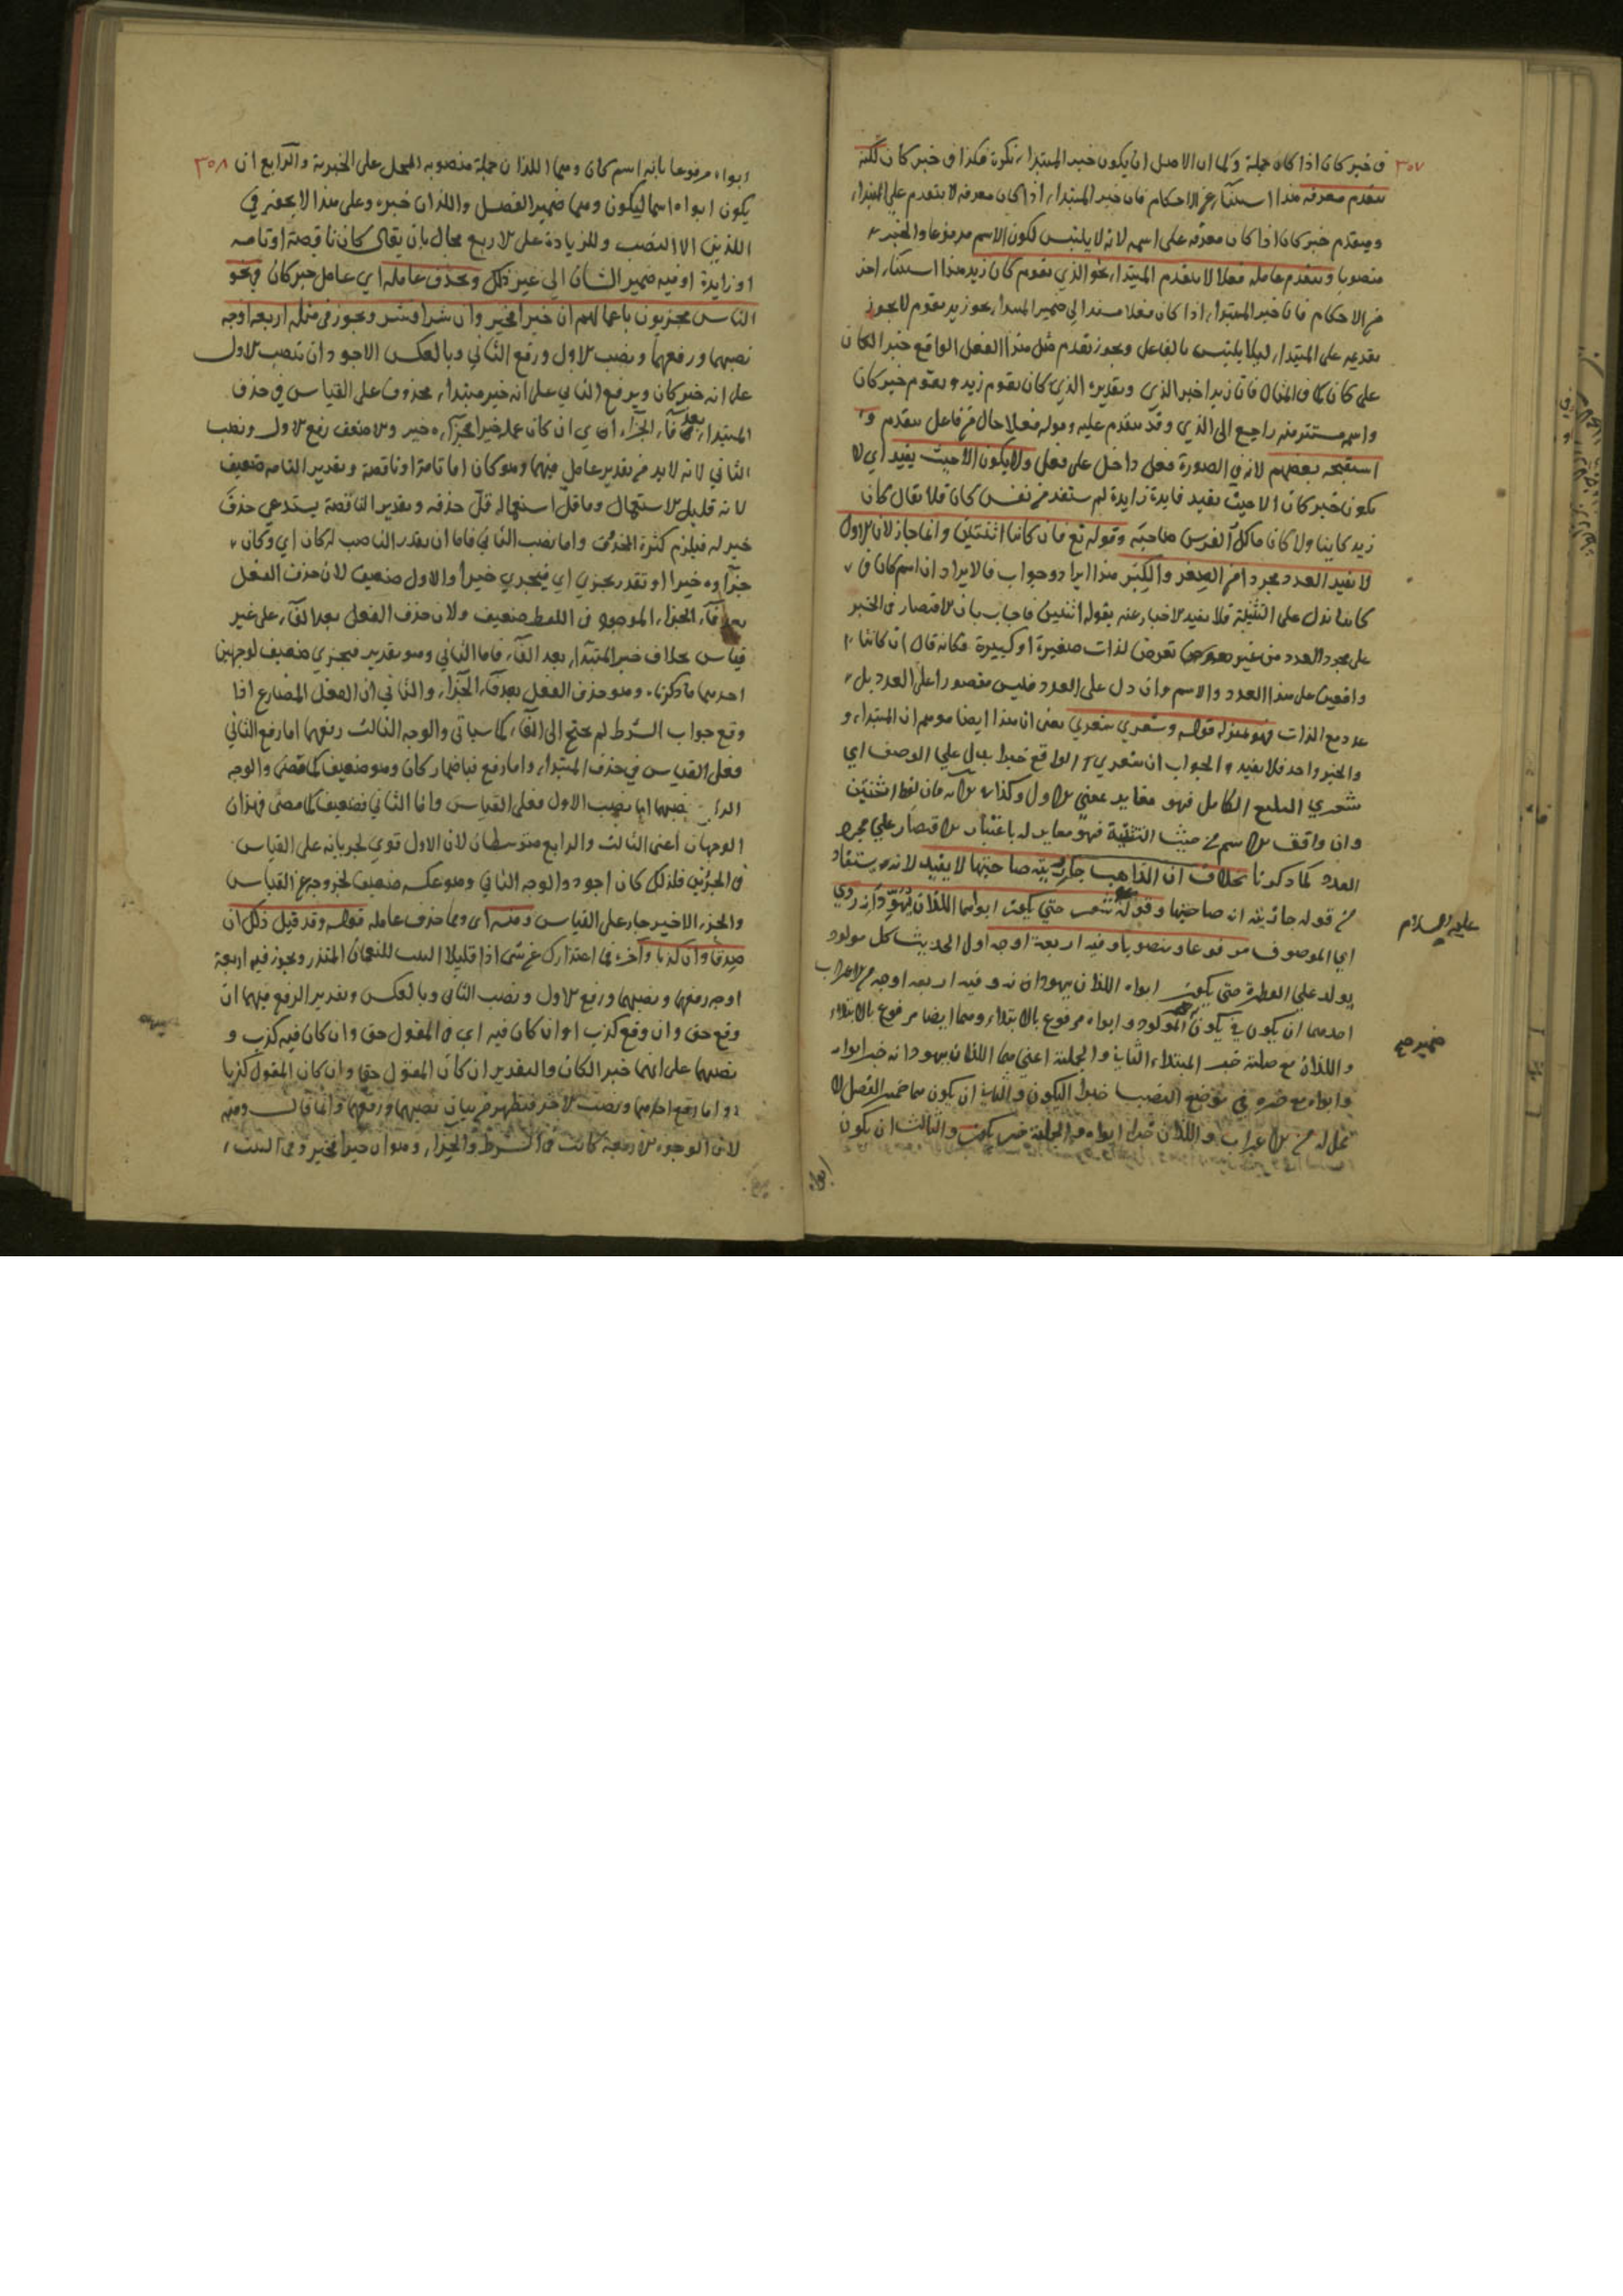 ٣٥٧
في خبر كان اذا كان جملة وكما ان الاصل ان يكون خبر المبتداء نكرة فكذا في خبر كان لكنه
يتقدم معرفه هذا استثناء عن الاحكام فان خبر المبتداء اذا كان معرفه لا يتقدم على المبتداء
ويتقدم خبر كان اذا كان معرفه على اسمه لانه لا يلتبس لكون الاسم مرفوعا والخبر
منصوبا ويتقدم عامله فعلا لا يتقدم المبتداء نحو الذي يقوم كان زيد هذا استثناء اخر
من الاحكام فان خبر المبتداء اذا كان فعلا مسندا الى ضمير المبتداء نحو زيد يقوم لا يجوز
تقديمه على المبتداء ليلا يلتبس بالفاعل ويجوز تقدم مثل هذا الفعل الواقع خبر الكان
على كان كما في المثال فان زيدا خبر الذي وتقديره الذي كان يقوم زيد ويقوم خبر كان
واسمه مستتر فيه راجع الى الذي وقد يتقدم عليه وقوله فعلا حال من فاعل يتقدم و
استقبحه بعضهم لانه في الصورة فعل داخل على فعل ولا يكون الا حيث يفيد اي لا
يكون خبر كان الا حيث يفيد فايدة زايدة لم يستفد من نفس كان فلا يقال كان
زيد كاينا ولا كان مالك الفرس صاحبه وقوله تع فان كانتا اثنتين وانما جاز لان الاول
لا يفيد العدد مجردا من الصغر والكبر هذا ايراد وجواب فالايراد ان اسم كان في
كانتا تدل على التثنية فلا يفيد الاخبار عنه بقوله اثنتين فاجاب بان الاقتصار في الخبر
على مجرد العدد من غير تعرض لذات صغيرة او كبيرة فكانه قال ان كانتا
واقعين على هذا العدد والاسم وان دل على العدد فليس مقصورا على العدد بل
عدد مع الذات فهو بمنزلة قوله وشعري شعري يعنى ان هذا ايضا موهم ان المبتداء و
والخبر واحد فلا يفيد والجواب ان شعري الواقع خبرا يدل علي الوصف اي
شعري البليغ الكامل فهو مغاير بمعنى الاول وكذا الاية فان لفظ اثنتين
وان وافق الاسم من حيث التثنية فهو مغاير له باعتبار الاقتصار علي مجرد
العدد كما ذكرنا بخلاف ان الذاهب جاريته صاحبها لا يفيد لانه يستفاد
من قوله جاريته انه صاحبها وقوله حتي يكون ابواه هما اللذان يهودانه روي
اي الموصوف مرفوعا ومنصوبا وفيه اربعة اوجه اول الحديث كل مولود
يولد علي الفطرة حتي يكون ابواه اللذان يهودانه وفيه اربعه اوجه من الاعراب
احدهما ان يكون في يكون المولود وابواه مرفوع بالابتداء وهما ايضا مرفوع بالابتداء
واللذان مع صلته خبر المبتداء الثاني والجملة اعني هما اللذان يهودانه خبر ابواه
وابواه مع خبره في موضع النصب خبرا ليكون والثاني ان يكون هما ضمير الفصل لا
محل له من الاعراب واللذان خبر ابواه والجملة خبر يكون والثالث ان يكون
عليه السلام
ضمير
ابواه
٣٥٨
ابواه مرفوعا بانه اسم كان وهما اللذان جملة منصوبه المحل على الخبرية والرابع ان
يكون ابواه اسما ليكون وهما ضمير الفصل واللذان خبره وعلى هذا لا يجوز في
اللذين الا النصب وللزيادة على الاربع مجال بان يقال كان ناقصة او تامه
او زايدة او فيه ضمير الشان الى غير ذلك ويحذف عامله اي عامل خبر كان في نحو
الناس مجزيون باعمالهم ان خيرا فخير وان شرا فشر ويجوز في مثله اربعة اوجه
نصبهما ورفعهما ونصب الاول ورفع الثاني وبالعكس الاجود ان ينصب الاول
على انه خبر كان ويرفع الثاني على انه خبر مبتداء محذوف على القياس في حذف
المبتداء بعد فاء الجزاء اي ان كان عمله خيرا فجزاءه خير والاضعف رفع الاول ونصب
الثاني لانه لابد من تقدير عامل فيهما وهو كان اما تامة او ناقصة وتقدير التامه ضعيف
لانه قليل الاستعمال وما قل استعماله قل حذفه وتقدير الناقصة يستدعي حذف
خبر له فيلزم كثرة الحذف واما نصب الثاني فاما ان يقدر الناصب له كان اي وكان
جزاؤه خيرا او تقدر يجزي اي فيجزي خيرا والاول ضعيف لان حذف الفعل
بعد فاء الجزاء الموجود في اللفظ ضعيف ولان حذف الفعل بعد الفاء على غير
قياس بخلاف خبر المبتداء بعد الفاء فاما الثاني وهو تقدير فيجزي ضعيف لوجهين
احدهما ما ذكرناه وهو حذف الفعل بعد فاء الجزاء والثاني ان الفعل المضارع اذا
وقع جواب الشرط لم يحتج الى الفاء كما سياتى والوجه الثالث رفعهما اما رفع الثاني
فعلى القياس في حذف المبتداء واما رفع فباضمار كان وهو ضعيف كما مضى والوجه
الرابع نصبهما اما نصب الاول فعلى القياس واما الثاني فضعيف كما مضى فهذان
الوجهان اعنى الثالث والرابع متوسطان لان الاول قوي لجريانه على القياس
في الجزئين فلذلك كان اجود والوجه الثاني وهو عكسه ضعيف لخروجه عن القياس
والجزء الاخير جار على القياس ومنه اى ومما حذف عامله قوله وقد قيل ذلك ان
صدقا وان كذبا وآخره فما اعتذارك من شئ اذا قليلا البيت للنعمان المنذر ويجوز فيه اربعة
اوجه رفعهما ونصبهما ورفع الاول ونصب الثاني وبالعكس وتقدير الرفع فيهما ان
وقع حق وان وقع كذب او ان كان فيه اي في المقول حق وان كان فيه كذب و
نصبهما على انهما خبر الكان والتقدير ان كان المقول حقا وان كان المقول كذبا
واما رفع احدهما ونصب الاخر فيظهر من بيان نصبهما ورفعهما وانما قال ومنه
لان الوجوه الاربعة كانت في الشرط والجزاء وهو ان خيرا فخير وفي البيت